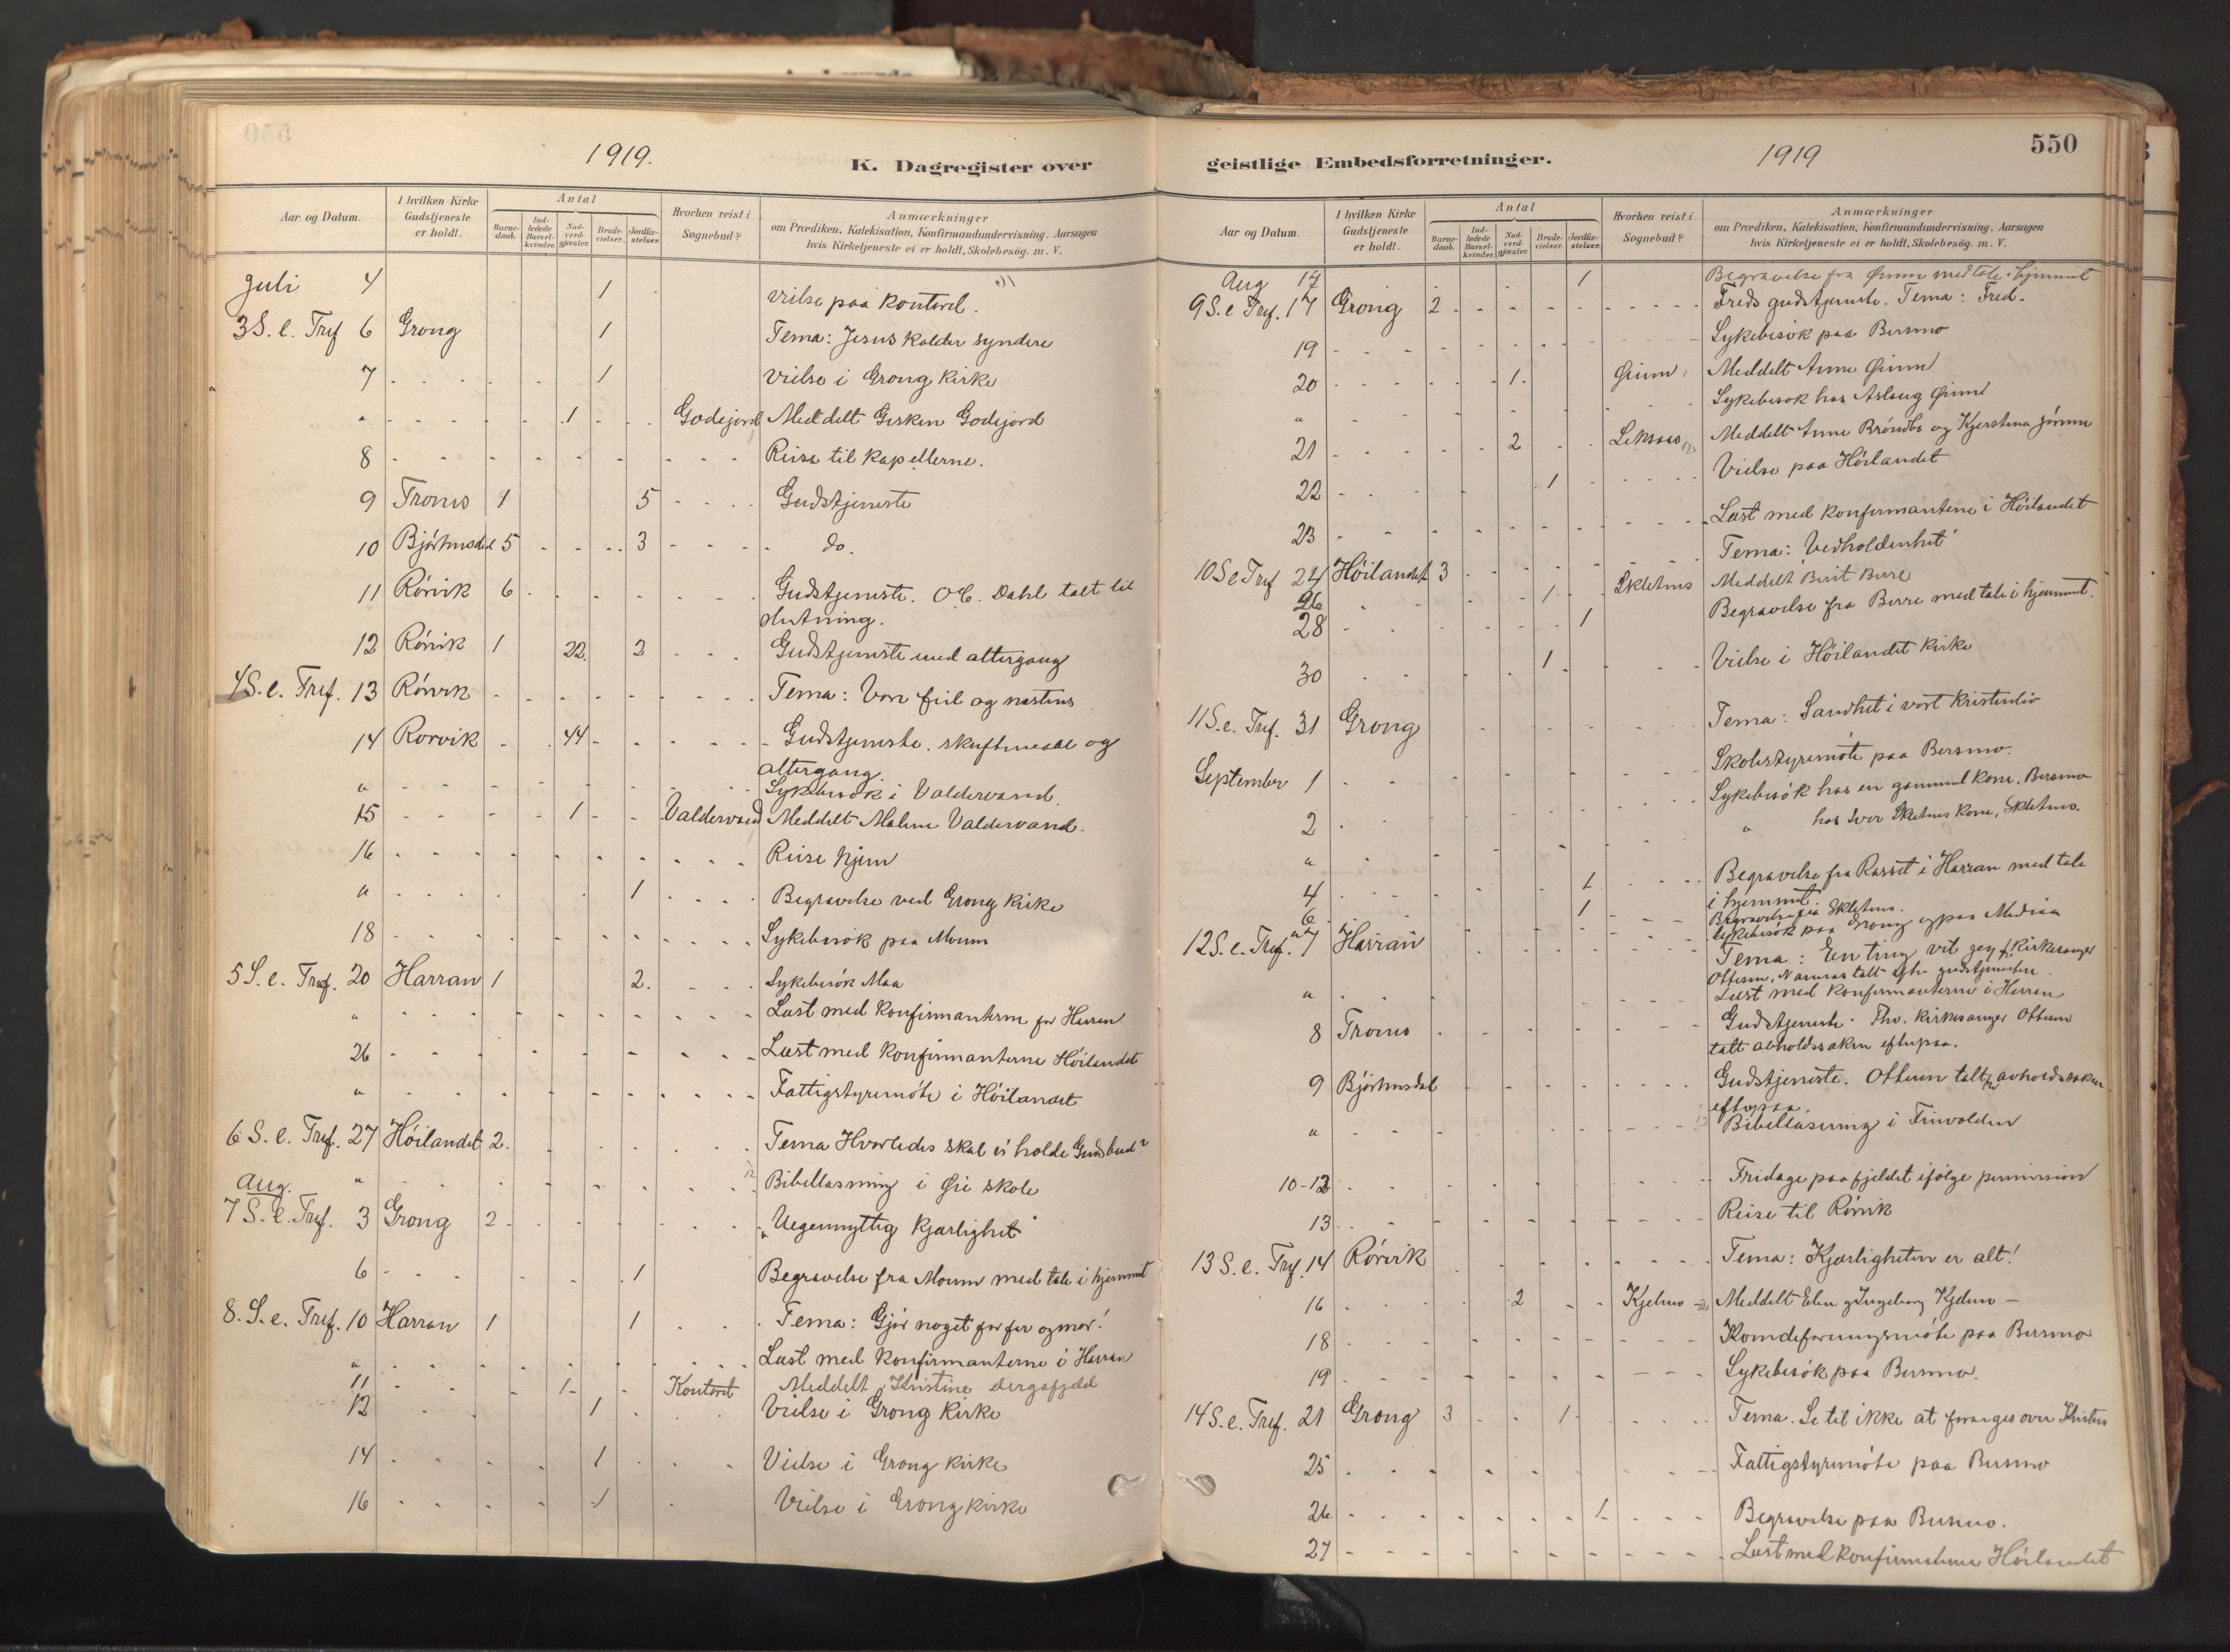 1919.
K. Dagregister over
Aar og Datum.
I hvilken Kirke Gudstjeneste er holdt.
Antal
Barne-daab.
Ind-ledede Barsel-kvinder.
Nad-verd-gjæster.
Brude-vielser.
Jordfæ-stelser.
Hvorhen reist i Sognebud?
Anmærkninger
om Prædiken, Katekisation, Konfirmandundervisning. Aarsagen
hvis Kirketjeneste ei er holdt, Skolebesög. m. V.
Juli 4 1 Vielse paa kontoret.
3 S. e. Tref 6 Grong 1 Tema: Jesus kalder syndere
7 1 Vielse i Grong kirke
" 1 Godejord Meddelt Gesken Godejord
8 Reise til kapellerne.
9 Trones 1 5 Gudstjeneste
10 Bjørhusdal 5 3 do.
11 Rørvik 6 Gudstjeneste. O. C. Dahl talt til
slutning.
12 Rørvik 1 22 2 Gudstjeneste med altergang
4 S. e. Tref. 13 Rørvik Tema: Vore feil og næstens
14 Rørvik 44 Gudstjeneste. skriftmaal og
altergang.
" Sykebesøk i Valdervand.
15 1 Valdervand Meddelt Malene Valdervand.
16 Reise hjem
" 1 Begravelse ved Grong kirke
18 Sykebesøk paa Moum
5 S. e. Tref. 20 Harran 1 2. Sykebesøk Moa
" Læst med konfirmanterne for Harran
26 Læst med konfirmanterne Høilandet
" Fattigstyremøte i Høilandet
6 S. e. Tref. 27 Høilandet 2. Tema Hvorledes skal vi holde Guds bud?
" Bibellæsning i Øie skole
Aug.
7 S. e. Tref. 3 Grong 2 "Uegennyttig kjærlighet"
6 1 Begravelse fra Moum med tale i hjemmet
8. S. e. Tref. 10 Harran 1 1 Tema: Gjør noget for far og mor!
" Læst med konfirmanterne i Harran
11 1 Kontoret Meddelt Kristine
12 1 Vielse i Grong kirke
14 1 Vielse i Grong kirke
16 1 Vielse i Grong kirke
geistlige Embedsforretninger.
1919
550
Aar og Datum.
I hvilken Kirke Gudstjeneste er holdt.
Antal
Barne-daab.
Ind-ledede Barsel-kvinder.
Nad-verd-gjæster.
Brude-vielser.
Jordfæ-stelser.
Hvorhen reist i Sognebud?
Anmærkninger
om Prædiken, Katekisation, Konfirmandundervisning. Aarsagen
hvis Kirketjeneste ei er holdt, Skolebesög. m. V.
Aug 17 1 Begravelse fra Grum med tale i hjemmet
9 S. e Tref. 17 Grong 2 Freds gudstjeneste. Tema: Fred.
19 Sykebesøk paa Bersmo
20 1. Meddelt Anne
" Sykebesøk hos Aslaug
21 2 Meddelt Anne Brøndbo og Kjerstina
22 1 Vielse paa Høilandet
23 Læst med konfirmantene i Høilandet
10 S e Tref 24 Høilandet 3 Tema: Vedholdenhet
26 1 Skletnes Meddelt Berit
28 1 Begravelse fra med tale i hjemmet.
30 1 Vielse i Høilandet kirke
11 S. e. Tref. 31 Grong Tema: Sandhet i vort kristenliv
September 1 Skolestyremøte paa Bersmo.
2 Sykebesøk hos en gammel kone. Bersmo
" " hos Iver Skletnes kone, Skletnes.
4 1 Begravelse fra Rosset i Harran med tale
i hjemmet.
6 1 Begravelse fra Skletnes.
" Sykebesøk paa Grong og paa Mediaa
12 S. e. Tref. 7 Harran Tema: En ting vet jeg. Kirkesanger
Ottesen, Namsos talt efter gudstjenesten.
" Læst med konfirmanterne i Harran
8 Trones Gudstjeneste. Fhv. kirkesanger Ottesen
talt avholdssaken efterpaa.
9 Bjørhusdal Gudstjeneste. Ottesen talt avholdssaken
efterpaa.
" Bibellæsning i Finvolden
10-12 Fridage paa fjeldet ifølge permission
13 Reise til Rørvik
13 S. e. Tref. 14 Rørvik Tema: Kjærligheten er alt!
16 2 Kjelmo Meddelt Elen og Ingeborg Kjelmo -
18 paa Bersmo
19 Sykebesøk paa Bersmo.
14 S. e. Tref. 21 Grong 3 1 Tema. Se til ikke at forarges over Kristus
25 Fattigstyremøte paa Bersmo
26 1 Begravelse paa Bersmo.
27 Læst med konfirmantene Høilandet